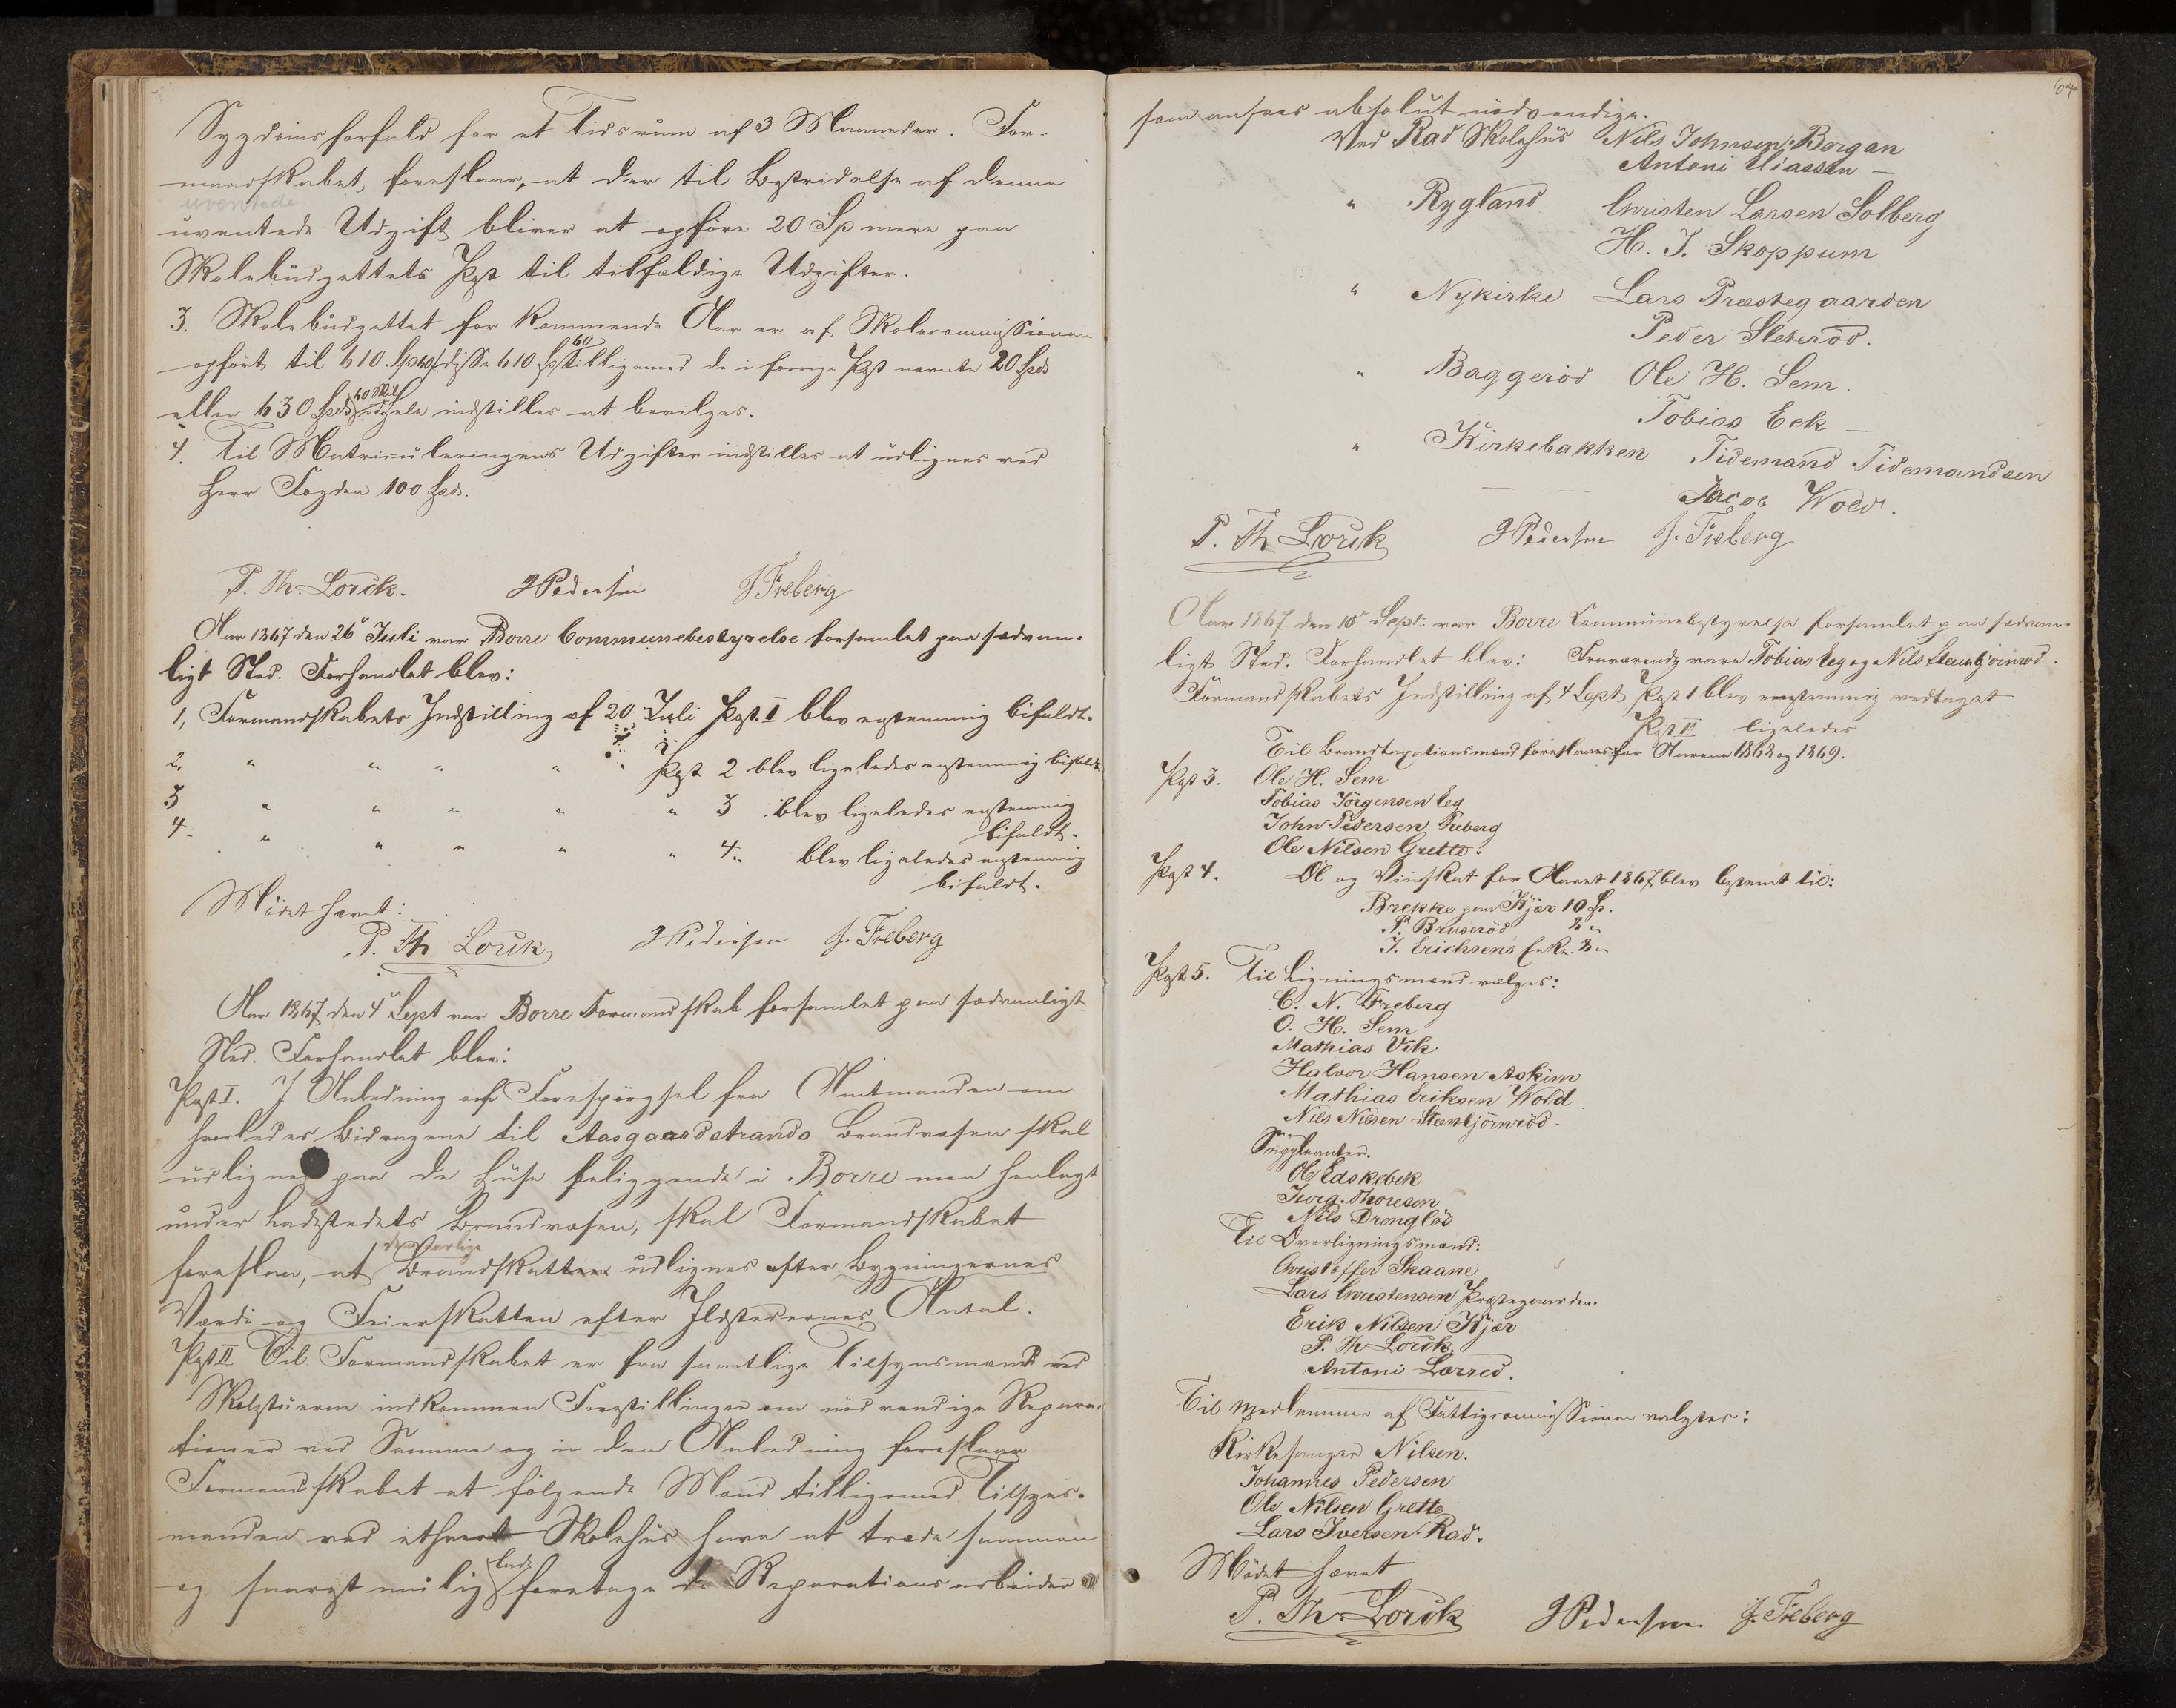 Sygdomsforfald for et Tidsrum af 3 Maaneder. For-
mandskabet foreslaar, at der til Bestridelse af denne
uventede
uventede Udgift bliver at opføre 20 Sp mere paa
Skolebudgettets Post til tilfældige Udgifter.
3. Skolebudgettet for kommende Aar er af Skolecommissionen
opført til 610 Sp 60 disse 610 Sp 60 tilligemed de i forrige Post nævnte 20 Spd
eller 630 Spd 60 Skil indstilles at bevilges.
4. Til Matriculeringens Udgifter indstilles at udlignes ved
Herr Fogden 100 Spd.
P. Th. Lorck. J Pedersen J Freberg
Aar 1867 den 26de Juli var Borre Communebestyrelse forsamlet paa sædvan-
ligt Sted. Forhandlet blev:
1, Formandskabets Indstilling af 20 Juli Post. I blev enstemmig bifaldt.
2. " " " " " Post 2 blev ligeledes enstemmig bifaldt.
3 " " " " " 3 blev ligeledes enstemmig
bifaldt.
4. " " " " " 4. blev ligeledes enstemmig
bifaldt.
Mödet hævet:
P. Th Lorck J Pedersen J. Freberg
Aar 1867 den 4de Sept var Borre Formandskab forsamlet paa sædvanligt
Sted. Forhandlet blev:
Post I. I Anledning af Forespörgsel fra Amtmanden om
hvorledes Bidragene til Aasgaardstrands Brandvæsen skal
udlignes paa de Huse beliggende i Borre men henlagt
under Ladestedets Brandvæsen, skal Formandskabet
foreslaa, at den aarlige Brandskatten udlignes efter Bygningernes
Værdi og Feierskatten efter Ildstedernes Antal.
Post II Til Formandskabet er fra samtlige Tilsynsmænd ved
Skolestuerne indkommen Forestillinger om nödvendige Repara-
tioner ved Samme og i den Anledning foreslaar
Formandskabet at fölgende Mænd tilligemed Tilsyns-
manden ved ethvert Skolehus have at træde sammen
og snarest mulig lade foretage de Reparationsarbeider
64
som ansees absolut nödvendige.
Ved Rad Skolehus Nils Johnsen Borgan
Antoni Eliassen –
" Rygland Christen Larsen Solberg
H. J. Skoppum
" Nykirke Lars Præstegaarden
Peder Sletteröd.
" Baggeröd Ole H. Sem.
Tobias Eek –
" Kirkebakken Tidemand Tidemandsen
Jacob Wold.
P. Th Lorck J Pedersen J. Freberg
Aar 1867 den 10de Sept: var Borre Communebestyrelse forsamlet paa sædvan-
ligt Sted. Forhandlet blev: Fraværende vare Tobias Eeg og Nils Steenbjörnröd.
Formandskabets Indstilling af 4 Sept Post 1 blev enstemmig vedtaget
Post II ligeledes
Til Brandtaxationsmænd foreslaaes for Aarene 1868 og 1869.
Post 3. Ole H. Sem
Tobias Jörgensen Eeg
John Pedersen Freberg
Ole Nilsen Grette.
Post 4. Öl og Viinskat for Aaret 1867 blev bestemt til:
Brekke paa Kjær 10 Sp.
P. Bruseröd 8 "
J. Erichsens Enke 8 "
Post 5. Til Ligningsmænd vælges:
C. N. Freberg
O. H. Sem
Mathias Vik
Halvor Hansen Askim
Mathias Eriksen Wold
Nils Nilsen Steenbjörnröd.
Suppleanter.
Ole Edsk
Thoresen
Nils Drongl
Til Overligningsmænd:
Christoffer Skaane
Lars Christensen Præstegaarden.
Erik Nilsen Kjær
P. Th Lorck.
Antoni Lorred.
Til Medlemmer af Fattigcommissionen valgtes:
Kirkesanger Nilsen.
Johannes Pedersen
Ole Nilsen Grette
Lars Iversen Rad.
Mödet hævet
P. Th Lorck J Pedersen J. Freberg